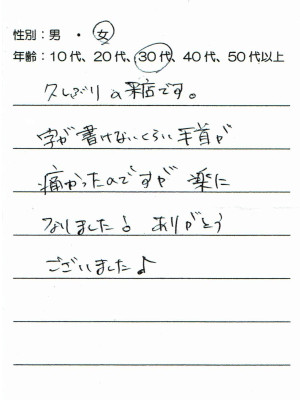 性別：男 ・ 女
年齢：10代、20代、30代、40代、50代以上
久しぶりの来店です。
字が書けないくらい手首が
痛かったのですが 楽に
なりました♪ ありがとう
ございました♪